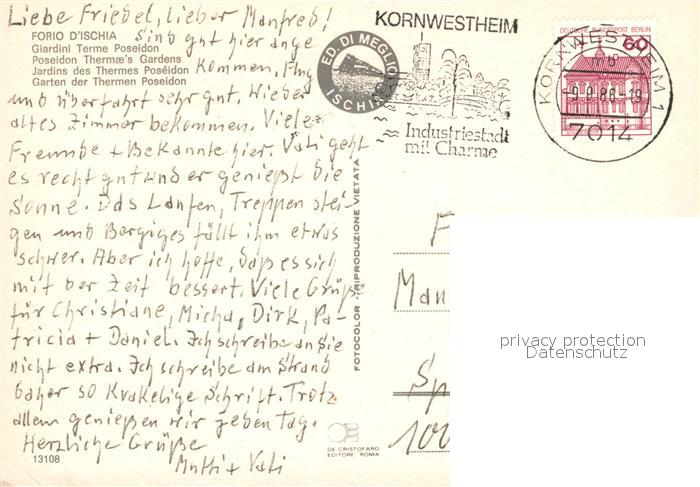 Liebe Friedel, lieber Manfred!
FORIO D'ISCHIA
Giardini Terme Poseidon
Poseidon Thermæ's Gardens
Jardins des Thermes Poséidon
Garten der Thermen Poseidon
Sind gut hier ange
kommen. Flug
und Überfahrt sehr gut. Wieder
altes Zimmer bekommen. Viele
Freunde + Bekannte hier. Vati geht
es recht gut und er genießt die
Sonne. Das Laufen, Treppen stei-
gen und Bergiges fällt ihm etwas
schwer. Aber ich hoffe, daß es sich
mit der Zeit bessert. Viele Grüße
für Christiane, Micha, Dirk, Pa-
tricia + Daniel. Ich schreibe an Sie
nicht extra. Ich schreibe am Strand
daher so krakelige Schrift. Trotz
allem genießen wir jeden Tag.
Herzliche Grüße
Mutti + Vati
13108
ED. DI MEGLIO
ISCHIA
FOTOCOLOR - RIPRODUZIONE VIETATA
DE CRISTOFARO
EDITORE ROMA
KORNWESTHEIM
Industriestadt
mit Charme
DEUTSCHE BUNDESPOST BERLIN
60
KORNWESTHEIM 1
-9.9.88-19
7014
F
Man
Sp
100
privacy protection
Datenschutz